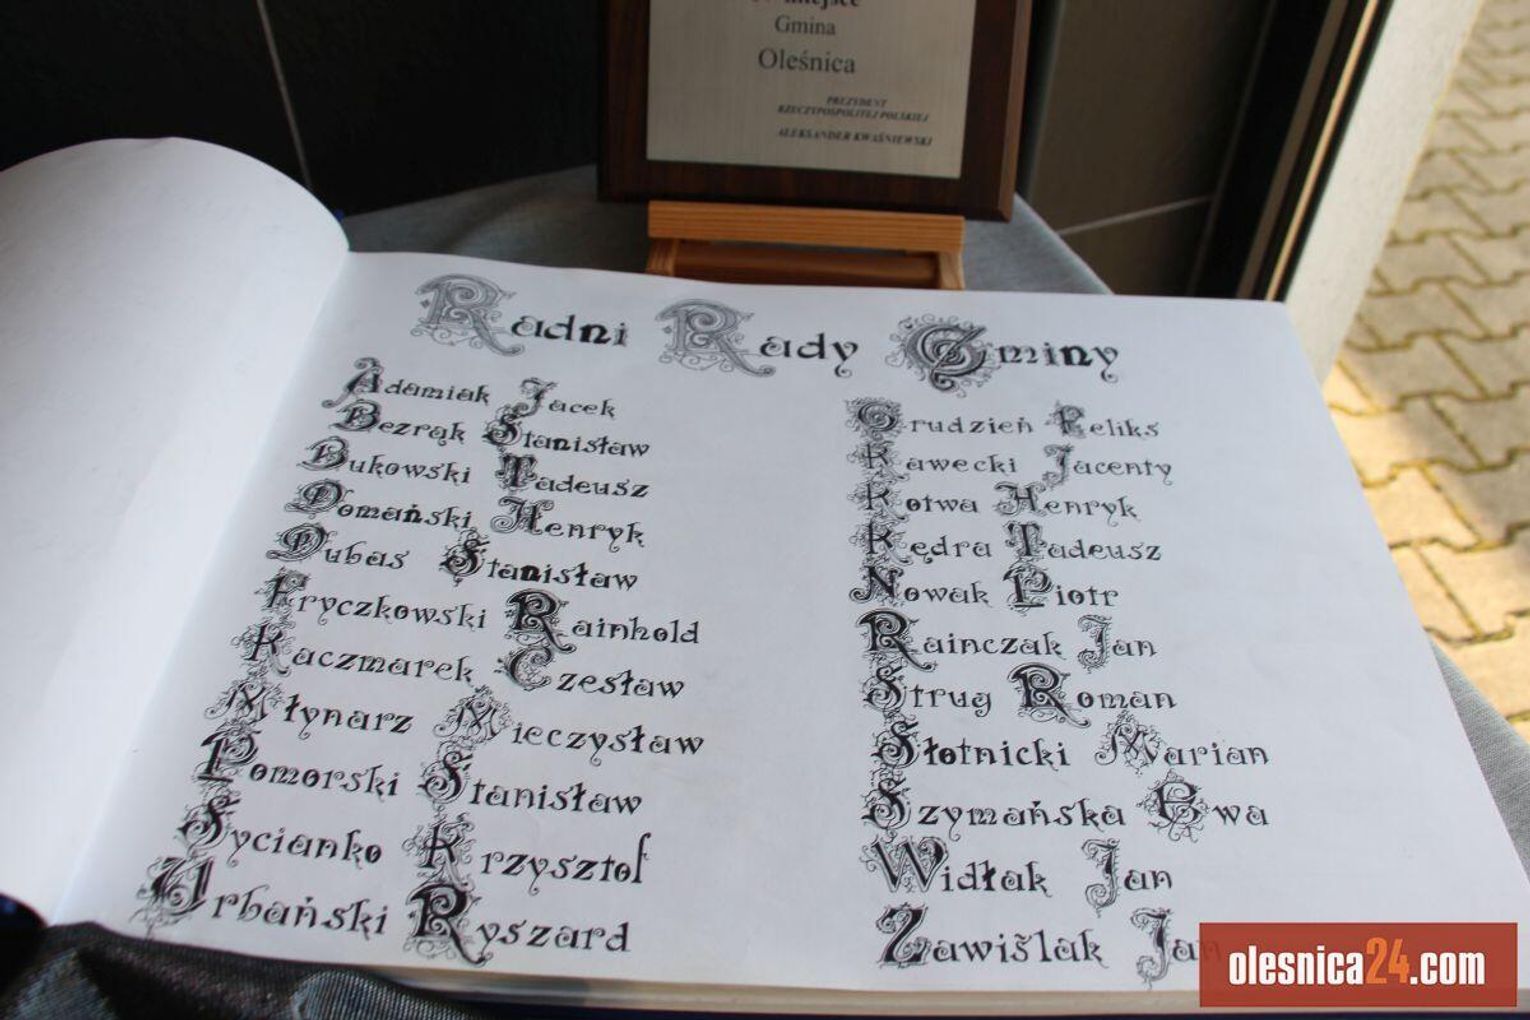 miejsce
Gmina
Oleśnica
PREZYDENT
RZECZYPOSPOLITEJ POLSKIEJ
ALEKSANDER KWAŚNIEWSKI
Radni Rady Gminy
Adamiak Jacek
Bezrąk Stanisław
Bukowski Tadeusz
Domański Henryk
Dubas Stanisław
Fryczkowski Rainhold
Kaczmarek Czesław
Młynarz Mieczysław
Pomorski Stanisław
Sycianko Krzysztof
Urbański Ryszard
Grudzień Feliks
Kawecki Jacenty
Kotwa Henryk
Kędra Tadeusz
Nowak Piotr
Rainczak Jan
Strug Roman
Słotnicki Marian
Szymańska Ewa
Widłak Jan
Zawiślak Jan
olesnica24.com